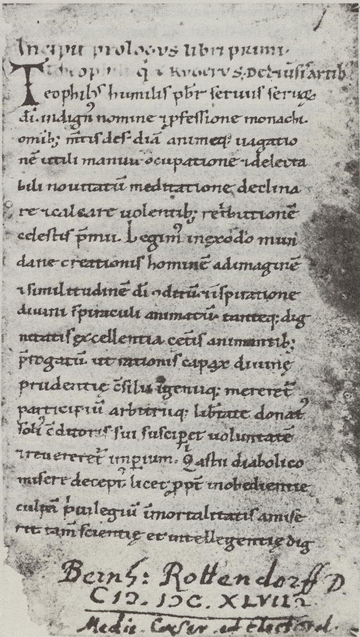 Incipit prologus libri primi.
Theoph q̇ & Rugerus. De diuersis artib;
Teophilꝰ humilis pb̄r seruus seruoꝝ
di. indignꝰ nomine ⁊ pfessione monachi
omib; mtis desidiā animeq; uagatio
nē utili manuū ocupatione ⁊ delecta
bili nouitatū meditatione declina
re ⁊ calcare uolentib; retributionē
celestis p̄mii. Legimꝰ in exodo mun
dane creationis hominē ad imaginē
⁊ similitudinē di ↄditū ⁊ īspiratione
diuini spiraculi animatū. tanteq; dig
nitatis excellentia cetis animantib;
p̄rogatū. ut rationis capax diuine
prudentie c̄silii īgeniiq; mereret᷑
participiū arbitriiq; lib̄tate donatꝰ
solī c̄ditoris sui susciperet uoluntatē
⁊ reuereret᷑ imperium. Qͥ astu diabolico
misere deceptꝰ licet ppt̄ inobedientie
culpā p̄uilegiū īmortalitatis amise
rit tam̄ scientie et intellegentie dig
Bernh: Rottendorff D
CIↃ. IↃC. XLVII
Medic. Caesar. ed Electoral.